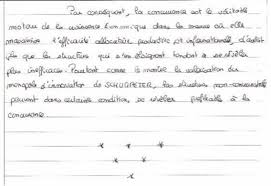 Par conséquent, la concurrence est le véritable
moteur de la croissance économique dans la mesure où elle
maximise l'efficacité allocative, productive et informationnelle, d'autant
plus que les structures qui s'en éloignent tendent à se révéler
plus inefficaces. Pourtant comme le montre la valorisation du
monopole d'innovation de SCHUMPETER, les situations non-concurrentielles
peuvent dans certaines conditions, se révéler profitables à la
concurrence.
* * *
* *
*